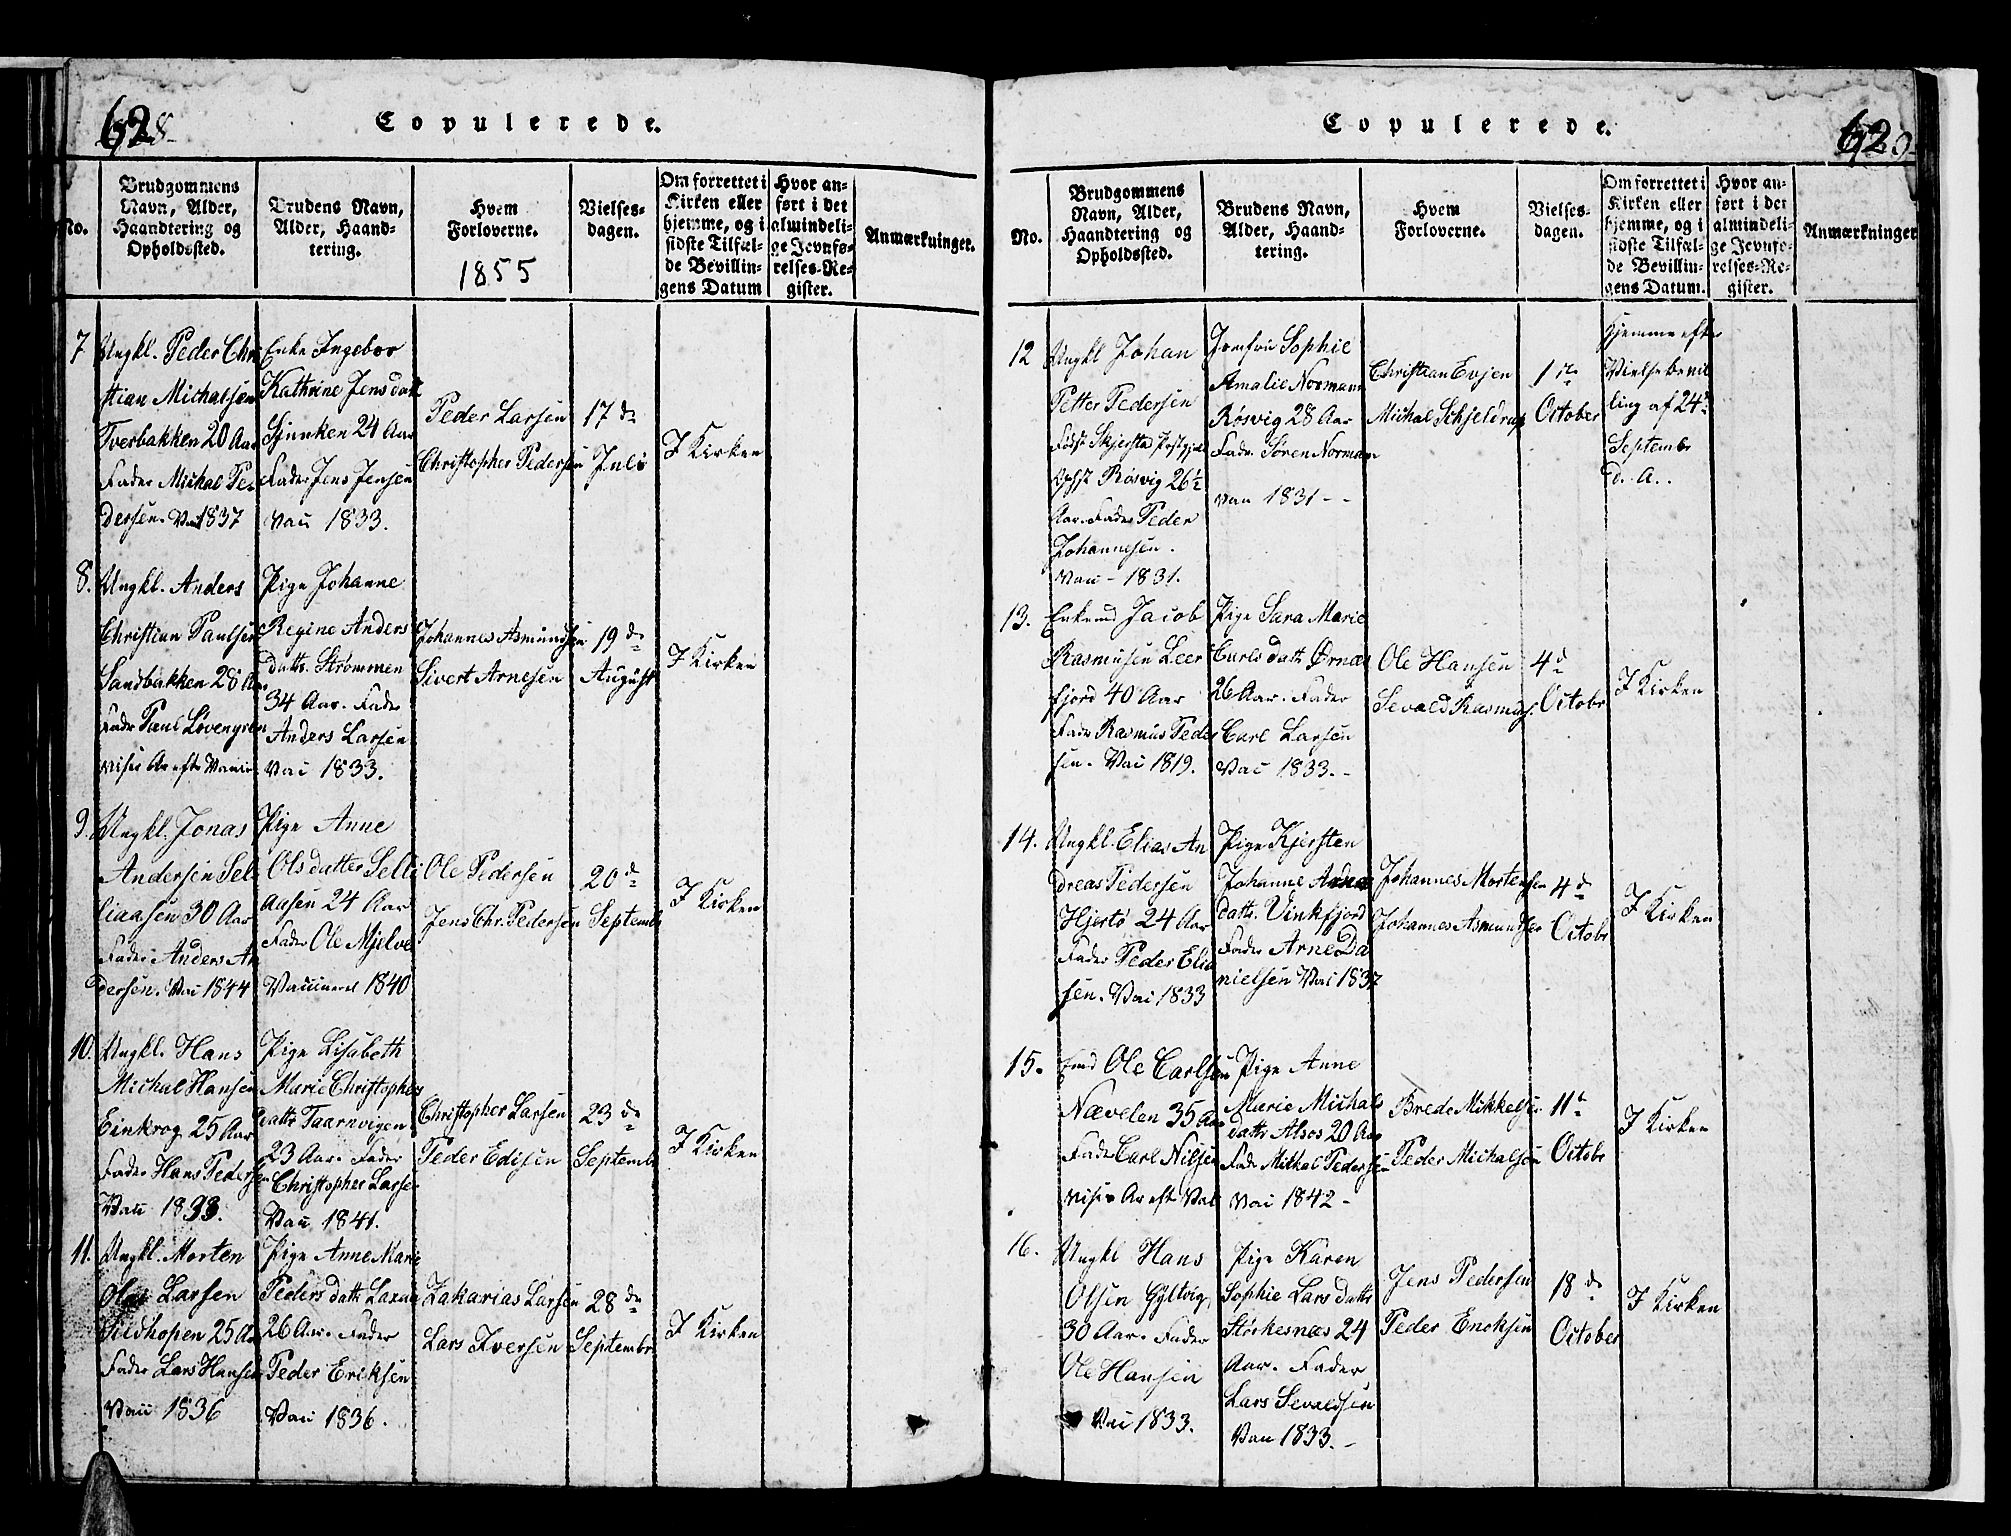 628
Copulerede.
No.
Brudgommens
Navn, Alder,
Haandtering og
Opholdssted.
Brudens Navn,
Alder, Haand-
tering.
Hvem
Forloverne.
1855
Vielses-
dagen.
Om forrettet i
Kirken eller
hjemme, og i
sidste Tilfæl-
de Bevillin-
gens Datum
Hvor an-
ført i det
almindeli-
ge Jevnfø-
relses-Re-
gister.
Anmærkninger.
7
Ungkl. Peder Chri
stian Michalsen
Tverbakken 20 Aar
Fader Michal Pe-
dersen. Vac 1837
Enke Ingebor
Kathrine Jensdatt
Sjunken 24 Aar
Fader Jens Jensen
Vac 1833.
Peder Larsen
Christopher Pedersen
17de
Juli
I Kirken
8.
Ungkl. Anders
Christian Paulsen
Sandbakken 28 Aar
Fader Paul Løvengren
Pige Johanne
Regine Anders
dattr. Strømmen
34 Aar. Fader
Anders Larsen
Vac 1833.
Johannes Asmundsen
Sivert Arnesen
19de
August
I Kirken
9.
Ungkl. Jonas
Andersen Sel
liaasen 30 Aar
Fader Anders An
dersen. Vac 1844
Pige Anne
Olsdatter Selli
aasen 24 Aar
Fader Ole Mjelve
Vaccineret 1840
Ole Pedersen
Jens Chr. Pedersen
20de
Septembr
I Kirken
10.
Ungkl. Hans
Michal Hansen
Einkrog 25 Aar
Fader Hans Pedersen
Vac 1833.
Pige Lisabeth
Marie Christopher
dattr Taarnvigen
23 Aar. Fader
Christopher Larsen
Vac 1841.
Christopher Larsen
Peder Edisen
23de
Septembr
I Kirken
11.
Ungkl. Morten
Olai Larsen
Sildhopen 25 Aar
Fader Lars Hansen
Vac 1836
Pige Anne Marie
Peders datt
26 Aar. Fader
Peder Eriksen
Vac 1836.
Zakarias Larsen
Lars Iversen
28de
Septembr
I Kirken
Copulerede.
No.
Brudgommens
Navn, Alder,
Haandtering og
Opholdssted.
Brudens Navn,
Alder, Haand-
tering.
Hvem
Forloverne.
Vielses-
dagen.
Om forrettet i
Kirken eller
hjemme, og i
sidste Tilfæl-
de Bevillin-
gens Datum.
Hvor an-
ført i det
almindeli-
ge Jevnfø-
relses-Re-
gister.
Anmærkninger
12
Ungkl Johan
Petter Pedersen
Født Skjerstad Præstgjæld
Røsvig 26½
Aar. Fader Peder
Johannesen.
Vac - 1831.
Jomfru Sophie
Amalie Normann
Røsvig 28 Aar
Fader Søren Normann
Vac 1831 - -
Christian Evjen
Michal Schjeldrup
1ste
October
Hjemme efter
Vielsebevil
ling af 24de
Septembr
d. A..
13.
Enkemd Jacob
Rasmusen Leer
fjord 40 Aar
Fader Rasmus Peder
sen. Vac 1819.
Pige Sara Marie
Carls datt Ørnæs
26 Aar. Fader
Carl Larsen
Vac 1833. -
Ole Hansen
Sevald Rasmus.
4d
Octobr
I Kirken
14.
Ungkl. Elias An
dreas Pedersen
Hjertø 24 Aar
Fader Peder Elia
sen. Vac 1833
Pige Kjersten
Johanne Arne
datt. Vinkfjord
Fader Arne Da
nielsen Vac 1837
Johannes Mortensen
Johannes Asmundsen
4d
Octobr
I Kirken
15.
Emd Ole Carlsen
Nævelen 35 Aar
Fader Carl Nilsen
Pige Anne
Marie Michals
datt Alsos 20 Aar
Fader Michal Pedersen
Vac 1842 -
Brede Mikkelsen
Peder Michalsen
11te
Octobr
I Kirken
16.
Ungkl Hans
Olsen Gyltvig,
30 Aar. Fader
Ole Hansen
Vac 1833.
Pige Karen
Sophie Lars datt
Størkesnes 24
Aar. Fader
Lars Sevaldsen
Vac 1833. -
Jens Pedersen
Peder Ericksen
18de
October
I Kirken